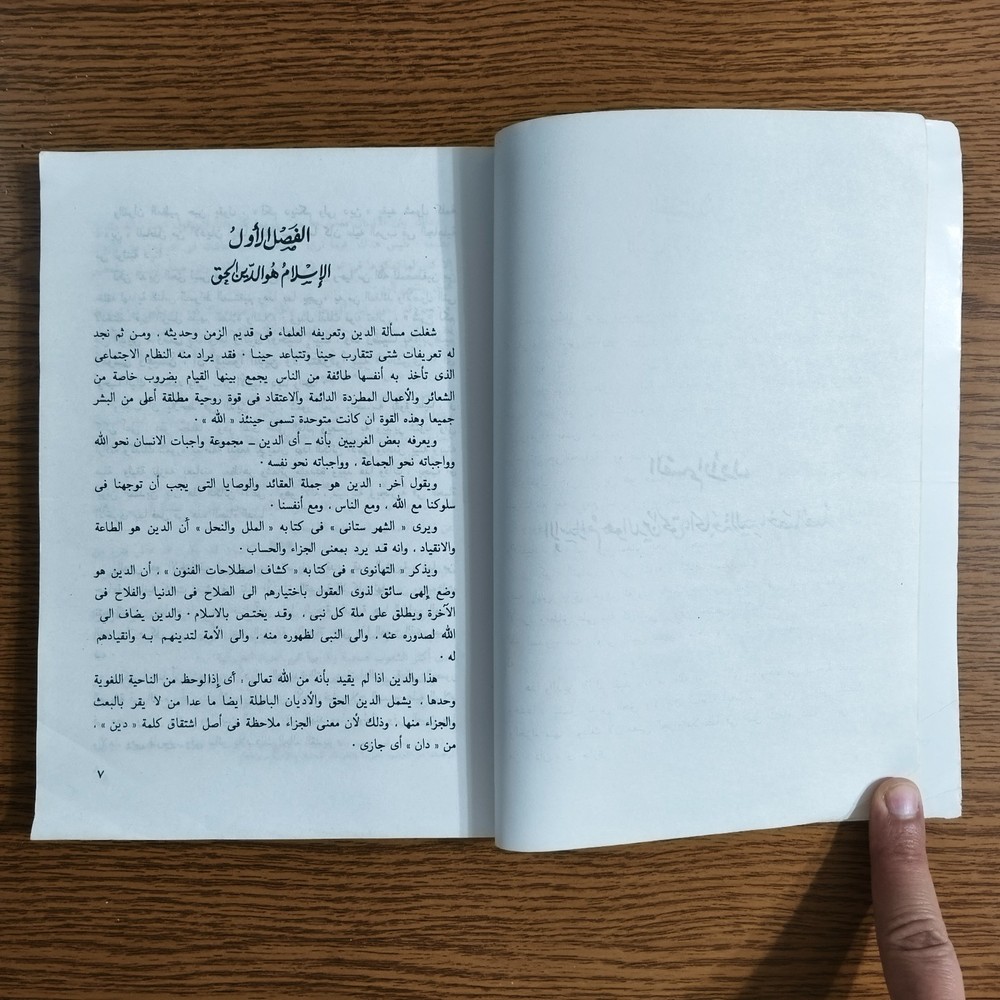 الفصل الأول
الإسلام هو الدين الحق
شغلت مسألة الدين وتعريفه العلماء فى قديم الزمن وحديثه ، ومن ثم نجد
له تعريفات شتى تتقارب حينا وتتباعد حينا ٠ فقد يراد منه النظام الاجتماعى
الذى تأخذ به أنفسها طائفة من الناس يجمع بينها القيام بضروب خاصة من
الشعائر والأعمال المطردة الدائمة والاعتقاد فى قوة روحية مطلقة أعلى من البشر
جميعا وهذه القوة ان كانت متوحدة تسمى حينئذ « الله » ٠
ويعرفه بعض الغربيين بأنه ــ أى الدين ــ مجموعة واجبات الانسان نحو الله
وواجباته نحو الجماعة ، وواجباته نحو نفسه ٠
ويقول آخر ، الدين هو جملة العقائد والوصايا التى يجب أن توجهنا فى
سلوكنا مع الله ، ومع الناس ، ومع أنفسنا ٠
ويرى « الشهر ستانى » فى كتابه « الملل والنحل » أن الدين هو الطاعة
والانقياد ، وانه قد يرد بمعنى الجزاء والحساب ٠
ويذكر « التهانوى » فى كتابه « كشاف اصطلاحات الفنون » ، أن الدين هو
وضع إلهى سائق لذوى العقول باختيارهم الى الصلاح فى الدنيا والفلاح فى
الآخرة ويطلق على ملة كل نبى ، وقد يختص بالاسلام ٠ والدين يضاف الى
الله لصدوره عنه ، والى النبى لظهوره منه ، والى الأمة لتدينهم به وانقيادهم
له ٠
هذا والدين اذا لم يقيد بأنه من الله تعالى ، أى إذالوحظ من الناحية اللغوية
وحدها ، يشمل الدين الحق والأديان الباطلة ايضا ما عدا من لا يقر بالبعث
والجزاء منها ، وذلك لأن معنى الجزاء ملاحظة فى أصل اشتقاق كلمة « دين » ،
من « دان » أى جازى ٠
٧